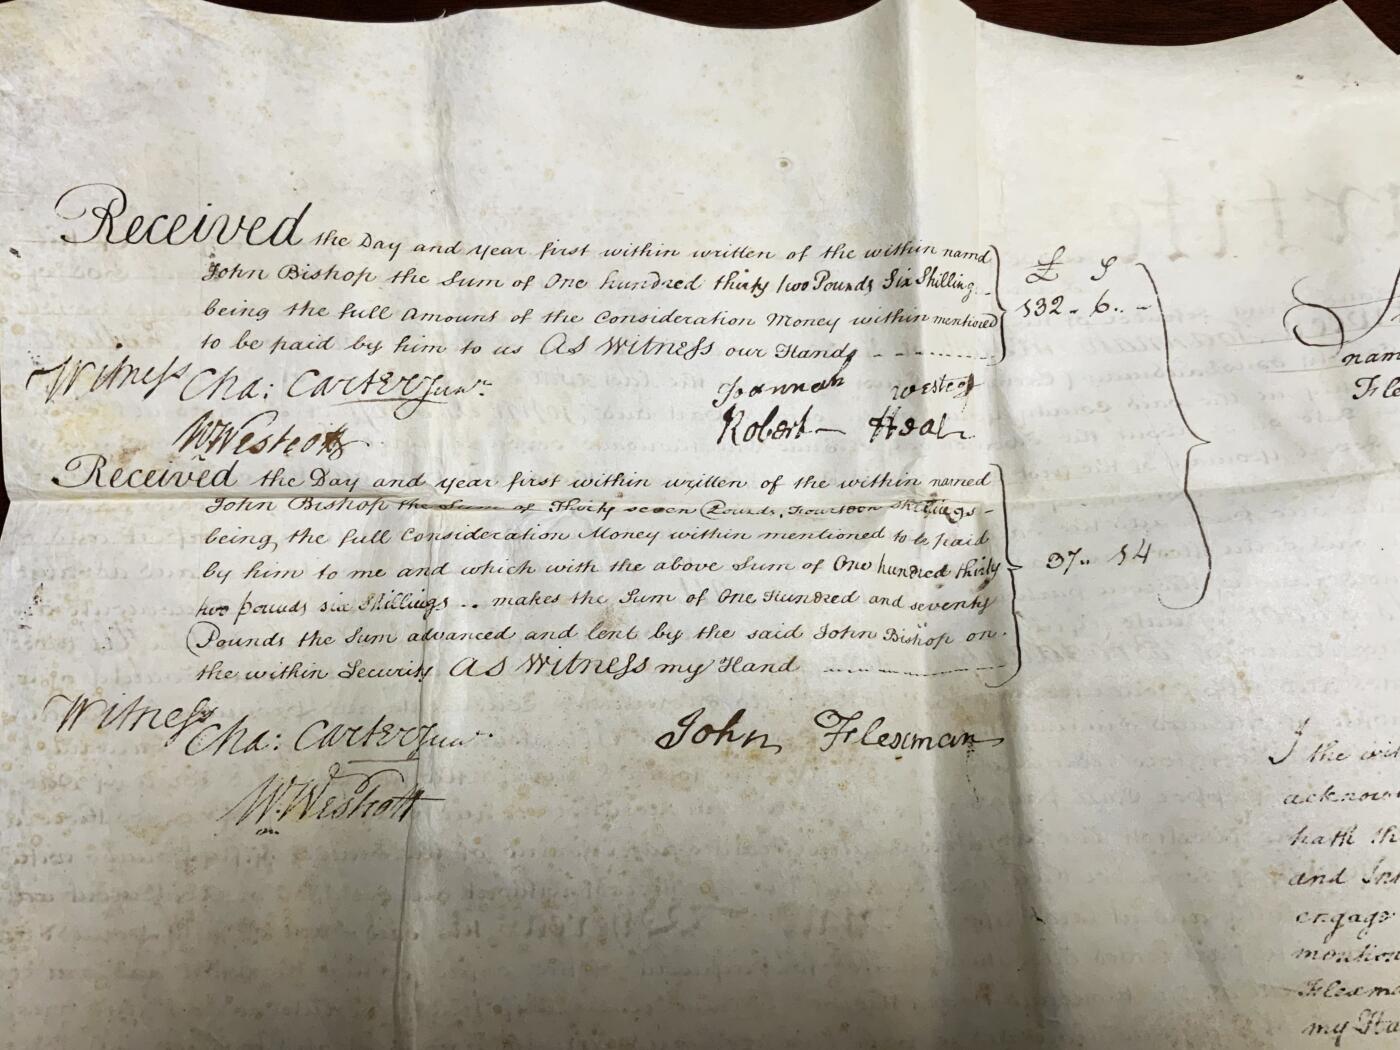 Received the Day and year first within written of the within named
John Bishop the Sum of One hundred thirty two Pounds Six Shillings
being the full Amount of the Consideration Money within mentioned
to be paid by him to us As Witness our Hands
£ S
132 - 6 . -
Witness Cha: Carter Junr.
Joannah
W Westcott
Robert Heal
Received the Day and year first within written of the within named
John Bishop the Sum of Thirty seven Pounds, Fourteen Shillings -
being the full Consideration Money within mentioned to be paid
by him to me and which with the above Sum of One hundred thirty
two pounds six Shillings .. makes the Sum of One Hundred and seventy
Pounds the Sum advanced and lent by the said John Bishop on
the within Security As Witness my Hand
37 .. 14
Witness Cha: Carter Junr.
John Flexman
W. Westcott
nam
Fle
I the wit
acknow
hath th
and In
engage
mention
Flexma
my Ha